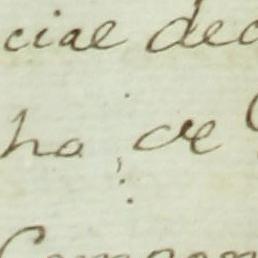 ciae dec
ha, de
Compon